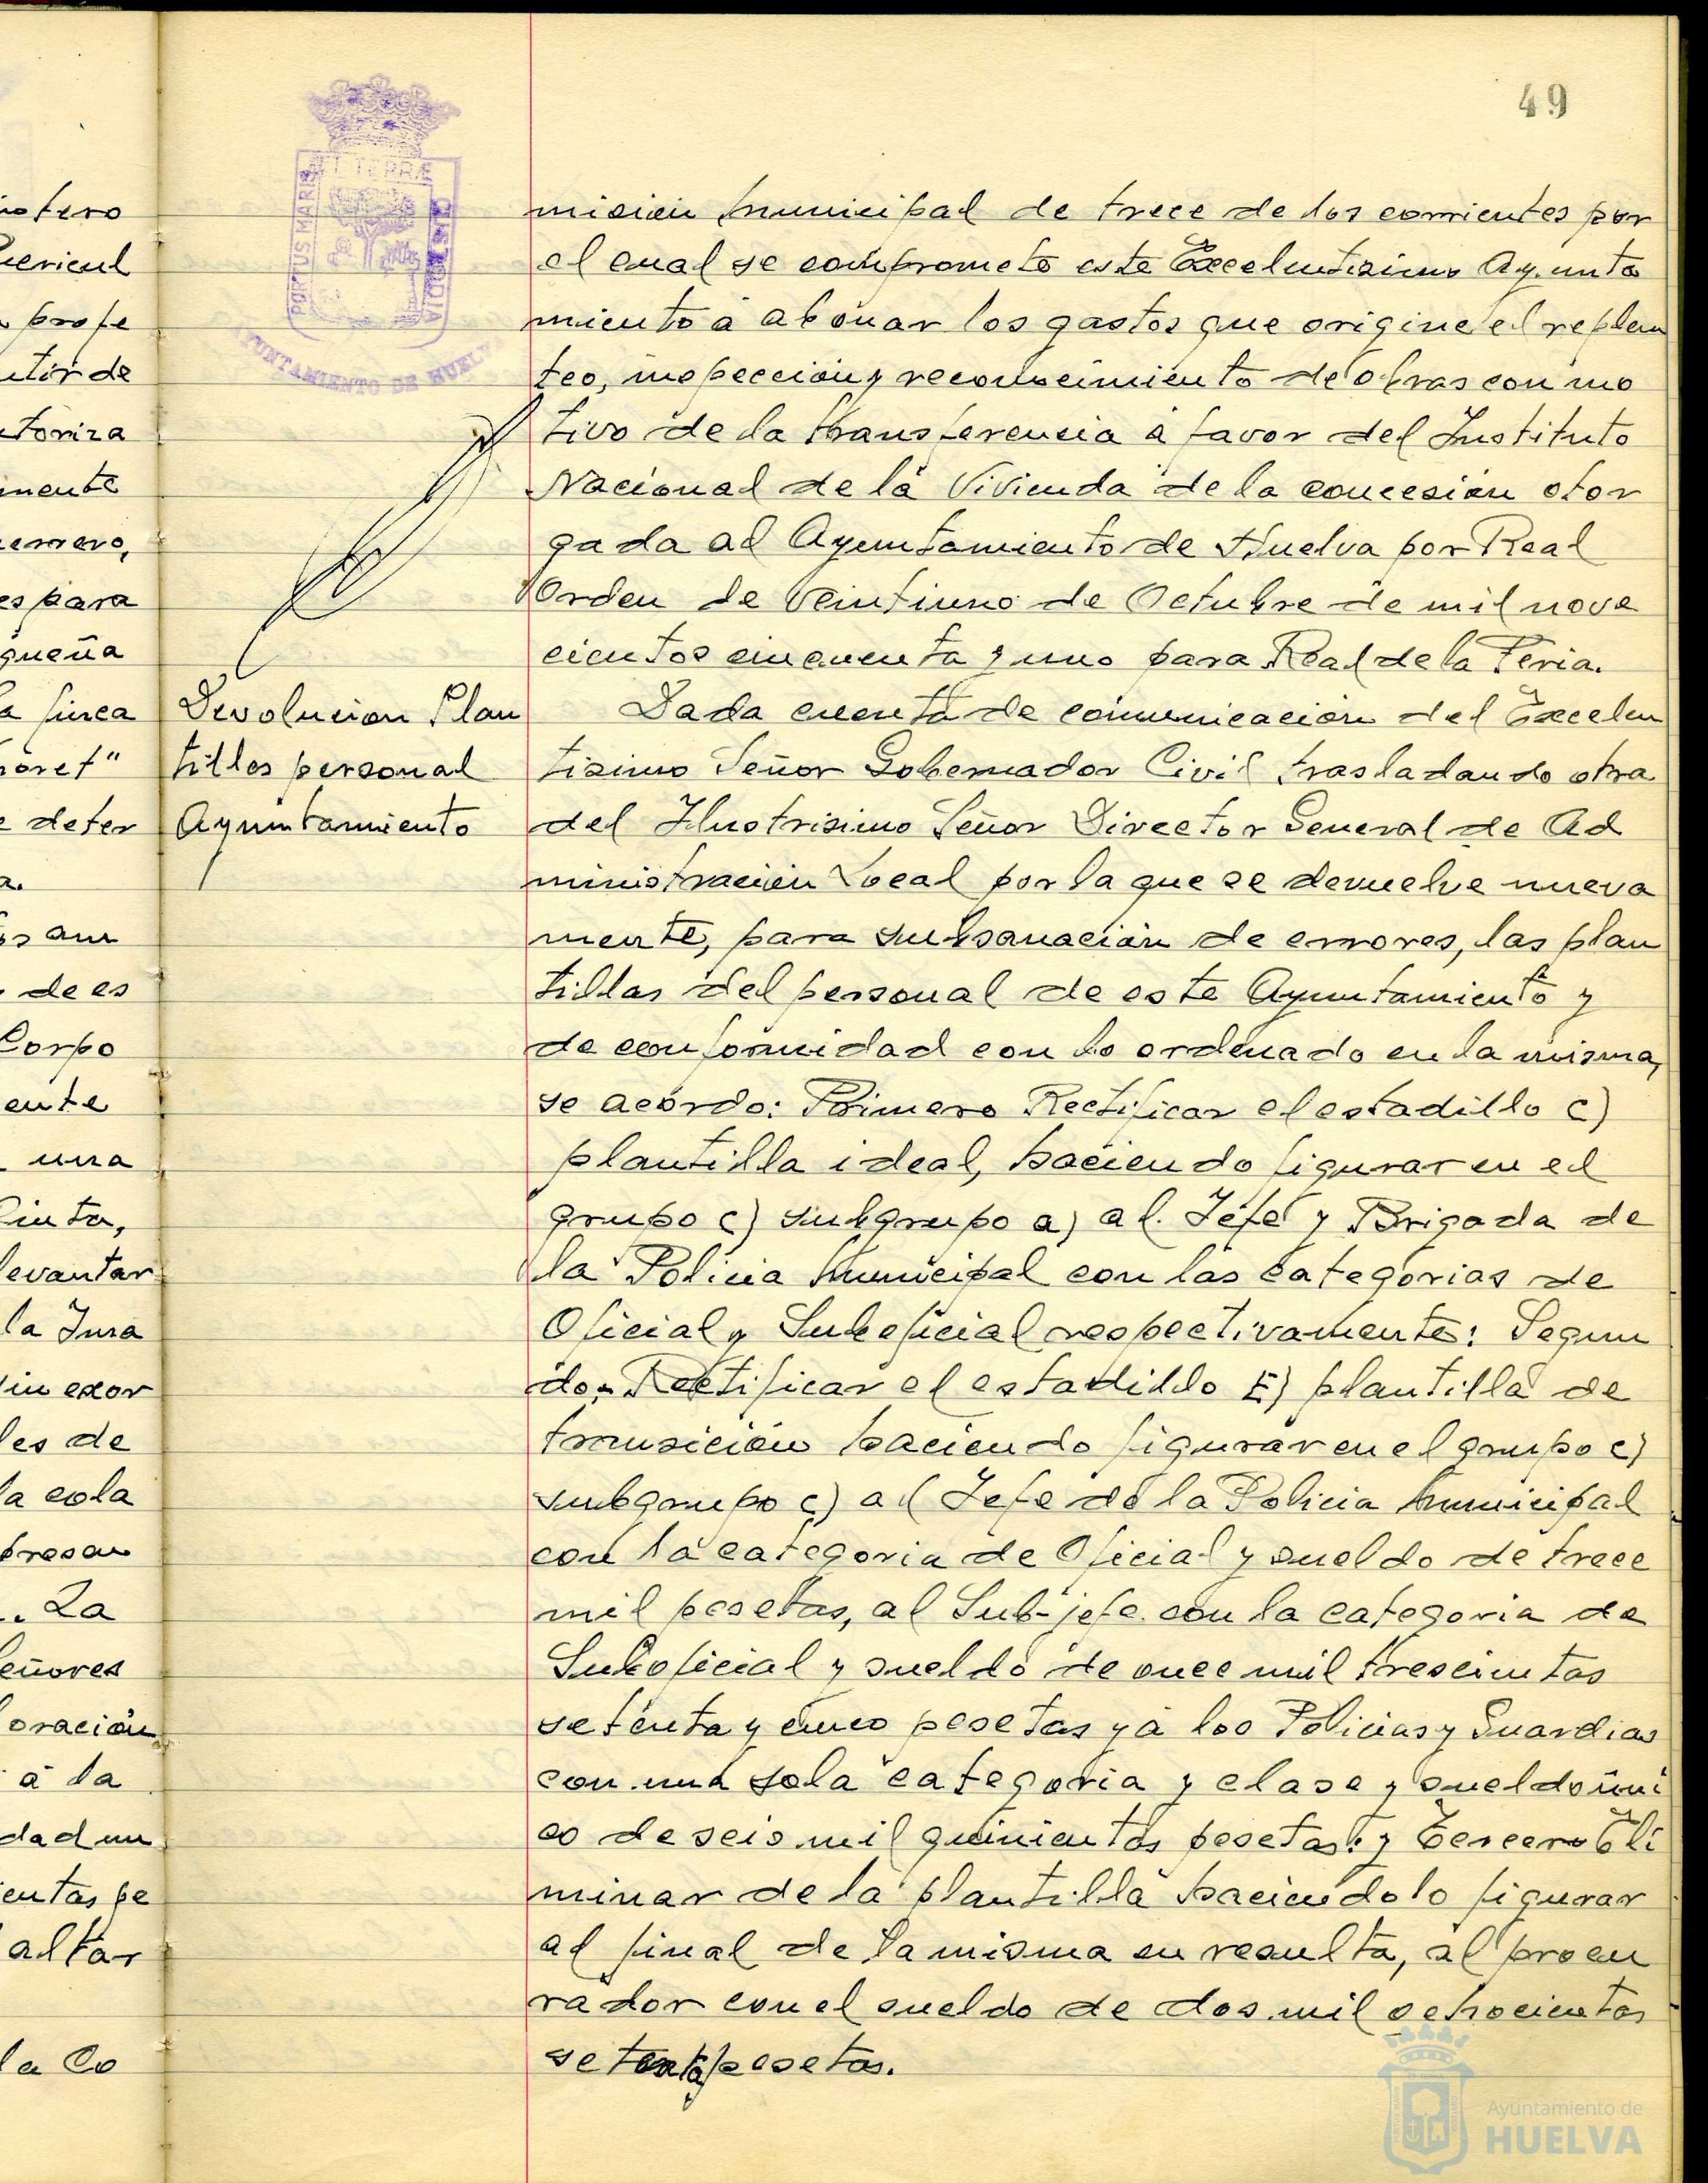 49
PORTUS MARIS ET TERRÆ CUSTODIA
AYUNTAMIENTO DE HUELVA
misión municipal de trece de los corrientes por
el cual se compromete este Excelentisimo Ayunta
miento á abonar los gastos que origine el replan
teo, inspección y reconocimiento de obras con mo
tivo de la transferencia á favor del Instituto
Nacional de la Vivienda de la concesión otor
gada al Ayuntamiento de Huelva por Real
Orden de veintiuno de Octubre de mil nove
cientos cincuenta y uno para Real de la Feria.
Devolucion Plan
tillas personal
Ayuntamiento
Dada cuenta de comunicación del Excelen
tisimo Señor Gobernador Civil trasladando otra
del Ilustrisimo Señor Director General de Ad
ministración Local por la que se devuelve nueva
mente, para subsanación de errores, las plan
tillas del personal de este Ayuntamiento y
de conformidad con lo ordenado en la misma,
se acordo: Primero Rectificar el estadillo c)
plantilla ideal, haciendo figurar en el
grupo c) subgrupo a) al Jefe y Brigada de
la Policia Municipal con las categorias de
Oficial y Suboficial respectivamente: Segun
do.- Rectificar el estadillo E) plantilla de
transición haciendo figurar en el grupo c)
subgrupo c) al Jefe de la Policia Municipal
con la categoria de Oficial y sueldo de trece
mil pesetas, al Sub-jefe con la categoria de
Suboficial y sueldo de once mil trescientas
setenta y cinco pesetas y á los Policias y Guardias
con una sola categoria y clase y sueldo úni
co de seis mil quinientas pesetas: y Tercero Eli
minar de la plantilla haciendolo figurar
al final de la misma en resulta, al procu
rador con el sueldo de dos mil ochocientas
setenta pesetas.
notero
profe
utor de
toriza
mente
es para
queña
a finca
oret"
e deter
de es
Corpo
ente
una
levantar
la Jura
les de
la cola
. La
eñores
oración
á la
dad un
entas pe
altar
la Co
Ayuntamiento de
HUELVA